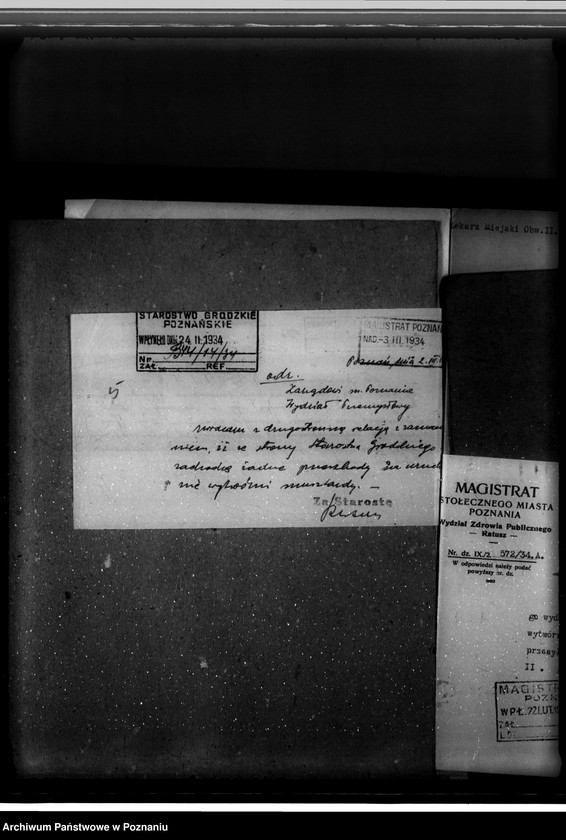 Lekarz Miejski Obw. II.
STAROSTWO GRODZKIE
POZNAŃSKIE
WPŁYNĘŁO DNIA 24 II. 1934
Nr.
ZAŁ. REF.
MAGISTRAT POZNAŃ
NAD. -3 III. 1934
Poznań, dnia 2. III.
odr.
Zarządowi m. Poznania
Wydział Przemysłowy
zwracam z drugostronną relacją i zaznaczam
niem, iż ze strony Starostwa Grodzkiego
zachodzą żadne przeszkody
wytwórni musztardy. —
Za Starostę
MAGISTRAT
STOŁECZNEGO MIASTA
POZNANIA
Wydział Zdrowia Publicznego
— Ratusz —
Nr. dz. IX/2 572/34. A.
W odpowiedzi należy podać
powyższy nr. dz.
go wyd
wytwór
przesył
II.
MAGISTR
POZN
WPŁ. 22 LUT. 19
ZAŁ.
L. D.
Archiwum Państwowe w Poznaniu